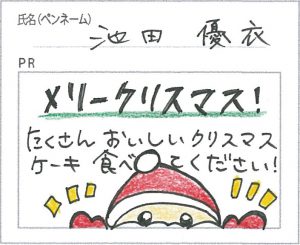 氏名(ペンネーム)
池田 優衣
PR
メリークリスマス!
たくさん おいしい クリスマス
ケーキ 食べてください!